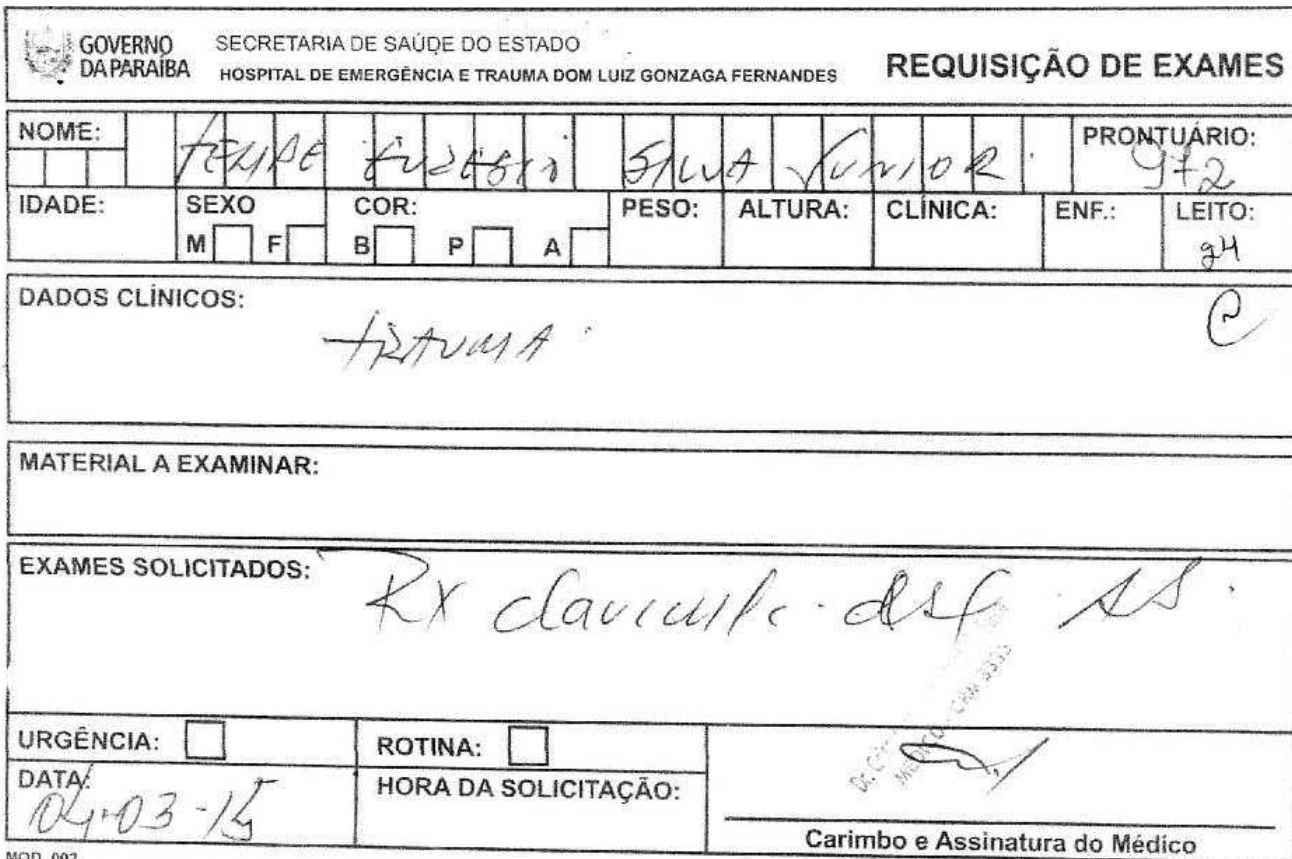 GOVERNO
DA PARAÍBA
SECRETARIA DE SAÚDE DO ESTADO
HOSPITAL DE EMERGÊNCIA E TRAUMA DOM LUIZ GONZAGA FERNANDES
REQUISIÇÃO DE EXAMES
NOME: SILVA JUNIOR
PRONTUÁRIO: 972
IDADE: SEXO M F COR: B P A PESO: ALTURA: CLÍNICA: ENF.: LEITO:
DADOS CLÍNICOS:
TRAUMA
MATERIAL A EXAMINAR:
EXAMES SOLICITADOS:
RX clavicula
URGÊNCIA: ROTINA:
DATA: 04-03-15
HORA DA SOLICITAÇÃO:
Carimbo e Assinatura do Médico